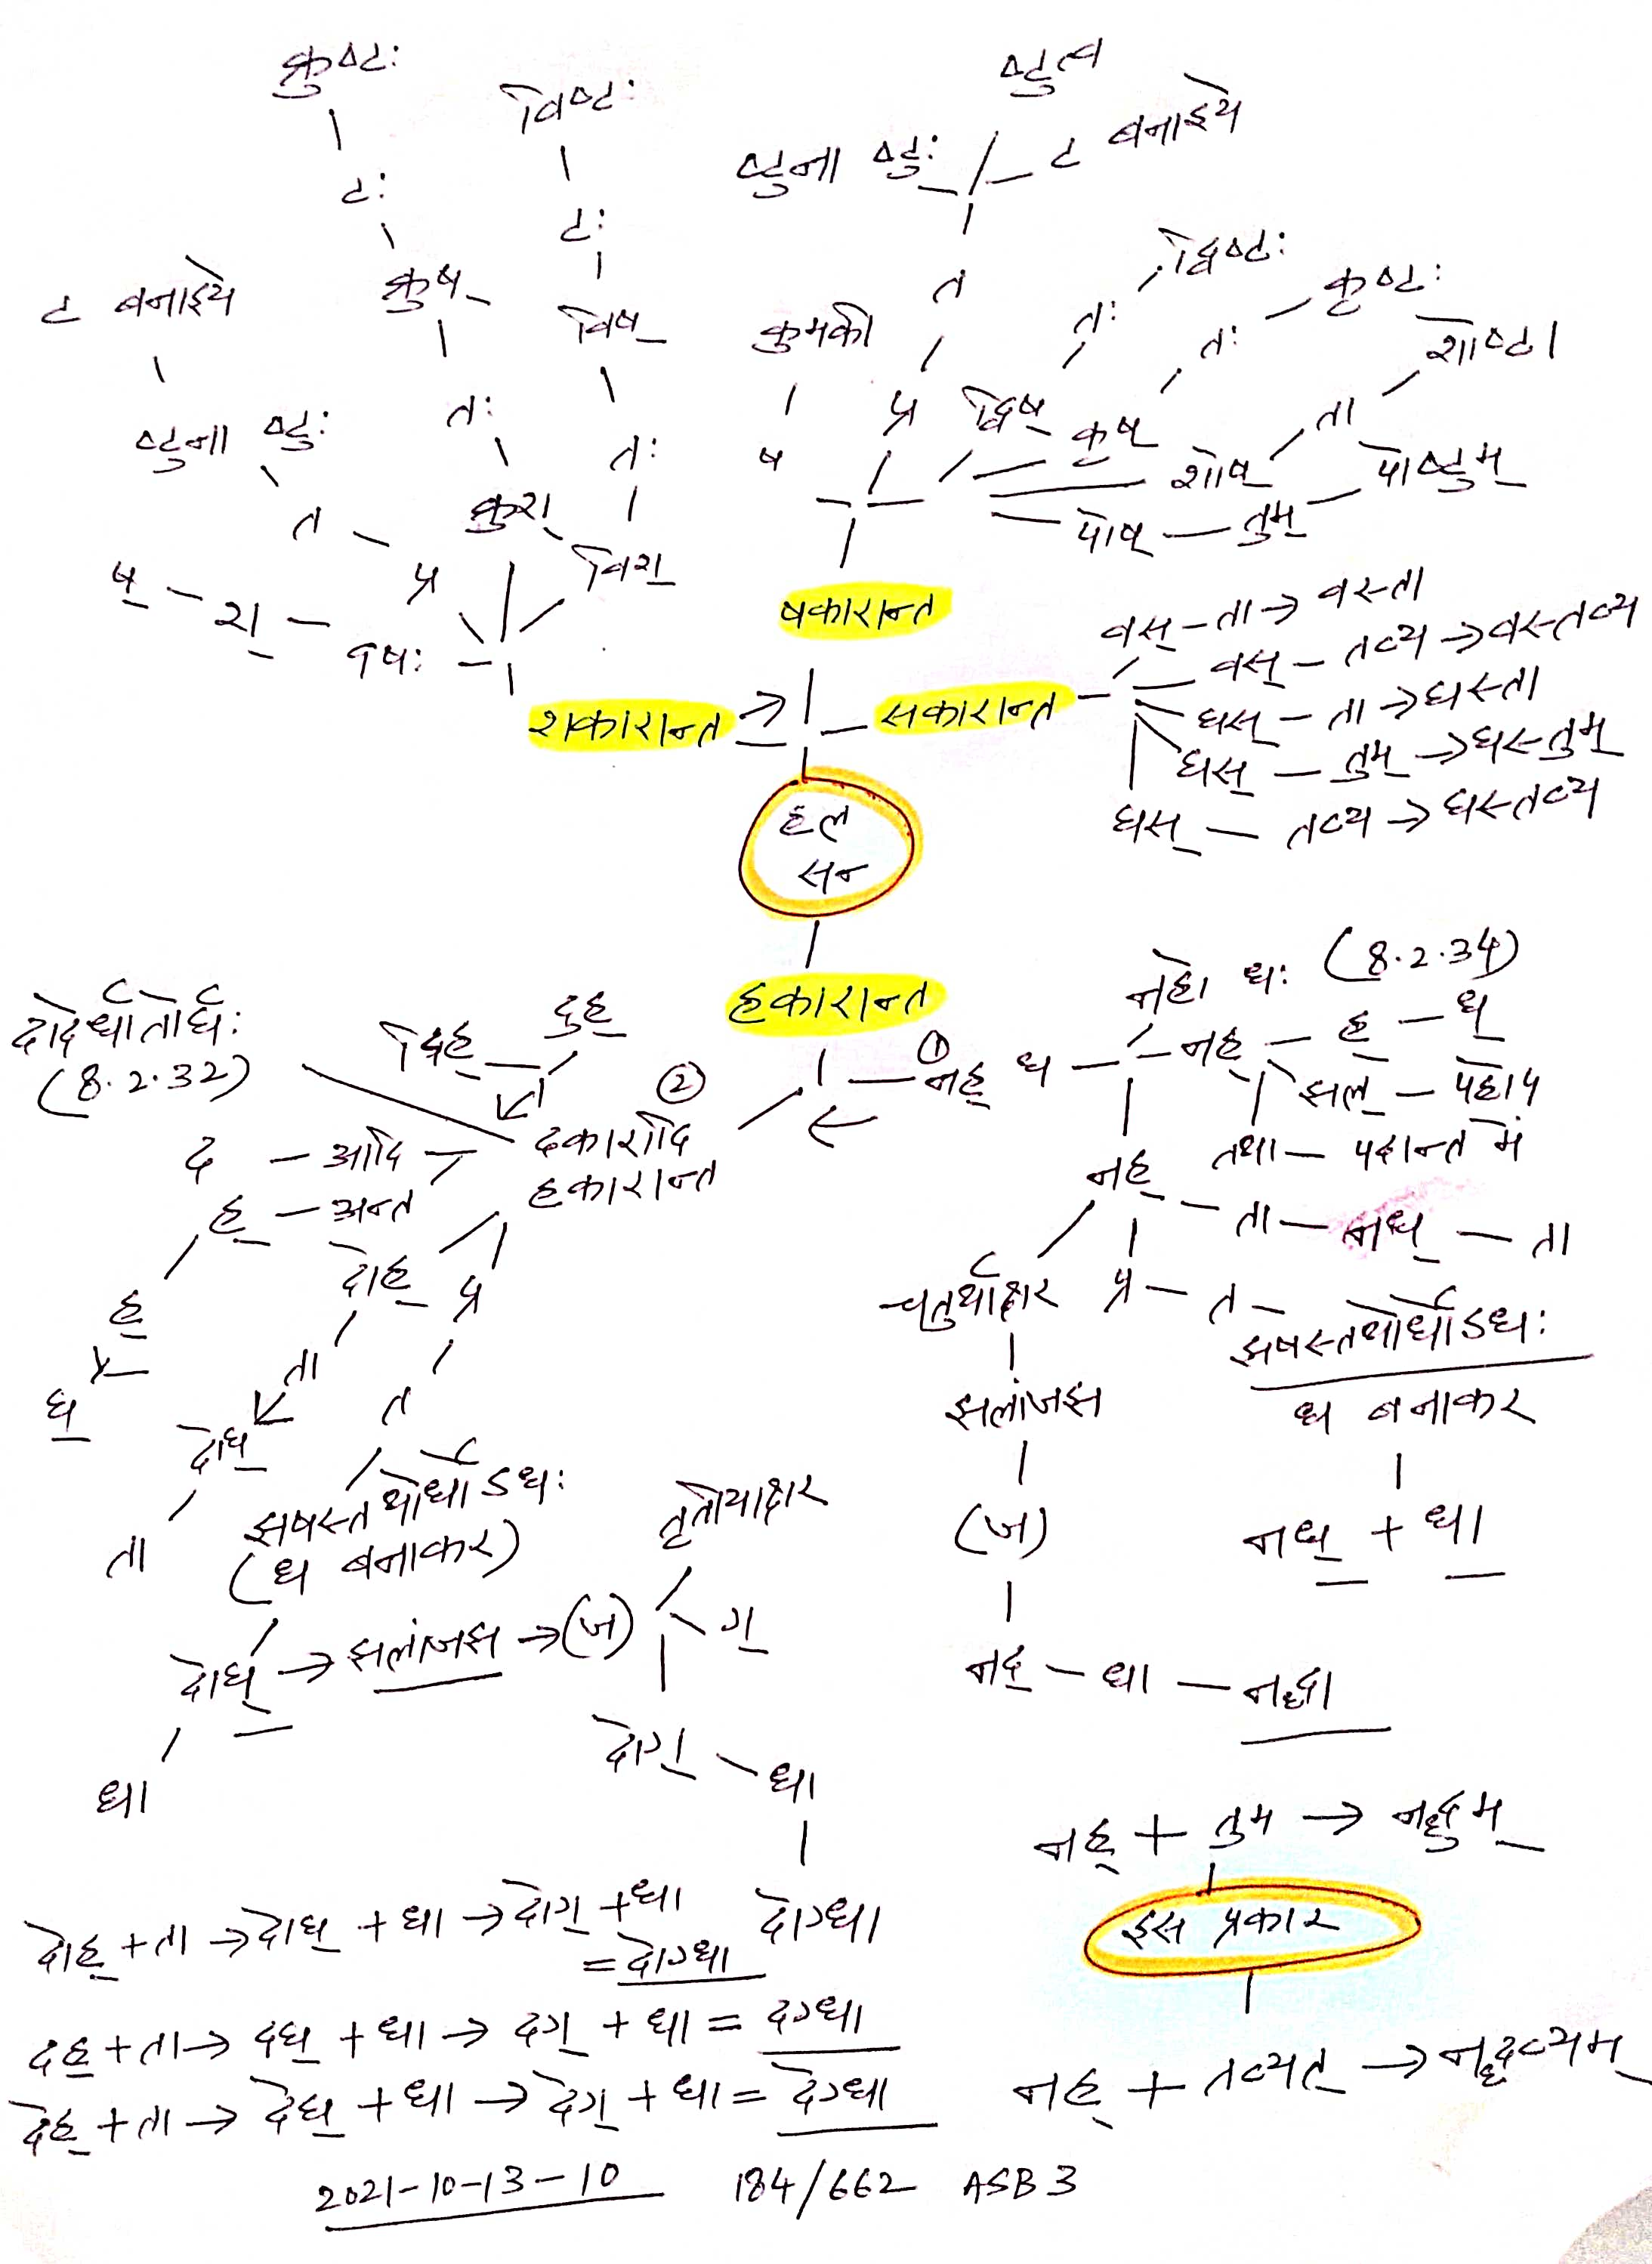 क्रुष्टः
विष्टः
ष्टुत्व
ष्टुना ष्टुः
ट बनाइये
टः
टः
ट बनाइये
क्रुष्
विष्
कुमकी
त
तः
द्विष्टः
तः
कृष्टः
शोष्टा
ष्टुना ष्टुः
तः
तः
ष
प्र
द्विष्
कृष्
शोष्
ता
पोष्टुम्
पोष्
तुम्
त
क्रुश्
विश्
ष्
श्
प्र
षकारान्त
वस् – ता → वस्ता
वस् – तव्य → वस्तव्य
शकारान्त
सकारान्त
घस् – ता → घस्ता
घस् – तुम् → घस्तुम्
घस् – तव्य → घस्तव्य
हल
सन्
हकारान्त
नहो धः (8.2.34)
दादेर्धातोर्घः
(8.2.32)
दिह्
दुह्
②
① नह्
ध – नह् – ह् – ध्
झल् – परे
तथा – पदान्त में
द – आदि
ह् – अन्त
दकारादि
हकारान्त
नह् – ता – नध् – ता
दोह्
प्र
ह्
घ्
ता
त
दोघ्
ता
चतुर्थाक्षर
प्र – त – झषस्तथोर्धोऽधः
झलांजश
ध बनाकर
झषस्तथोर्धोऽधः
(ध बनाकर)
तृतीयाक्षर
(ज)
नध् + धा
दोघ् → झलांजश → (ज)
ग्
नद् – धा – नद्धा
धा
दोग् – धा
नह् + तुम → नद्धुम्
दोग्धा
इस प्रकार
दोह् + ता → दोघ् + धा → दोग् + धा
= दोग्धा
दह् + ता → दघ् + धा → दग् + धा = दग्धा
देह् + ता → देघ् + धा → देग् + धा = देग्धा
नह् + तव्यत् → नद्धव्यम्
2021-10-13-10 184/662 ASB3